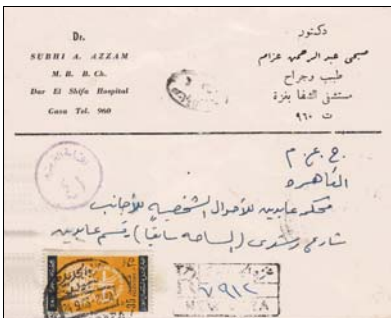 Dr.
SUBHI A. AZZAM
M. B. B. Ch.
Dar El Shifa Hospital
Gaza Tel. 960
دكتور
صبحي عبد الرحمن عزام
طبيب وجراح
مستشفى الشفا بغزة
ت ٩٦٠
ج.ع.م
القاهرة
محكمة عابدين للأحوال الشخصية للأجانب
شارع رشدى (الساحة سابقا) قسم عابدين
٧٩١٢